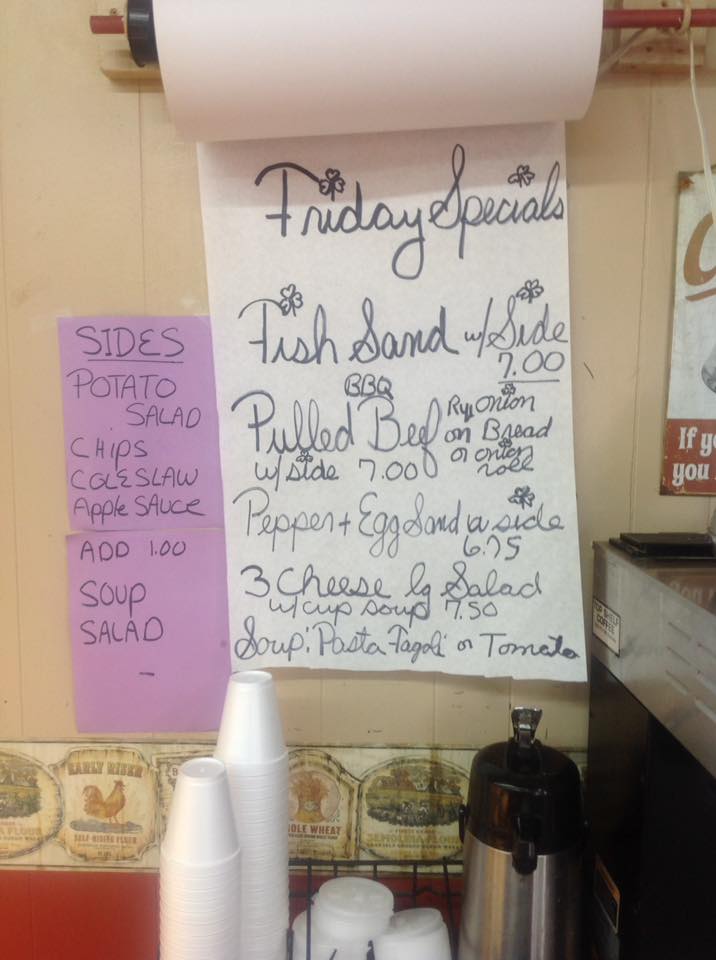 Friday Specials
Fish Sand w/ Side
7.00
BBQ
Pulled Beef
w/ side 7.00
Rye, onion
on Bread
or onion
roll
Pepper + Egg Sand w side
6.75
3 Cheese lg Salad
w/ cup soup 7.50
Soup: Pasta Fagoli or Tomato
SIDES
POTATO
SALAD
CHIPS
COLESLAW
Apple SAUCE
ADD 1.00
SOUP
SALAD
-
If y
you
COFFEE
EARLY RISER
SELF-RISING FLOUR
OLE WHEAT
SEMOLINA FLOUR
FLOUR